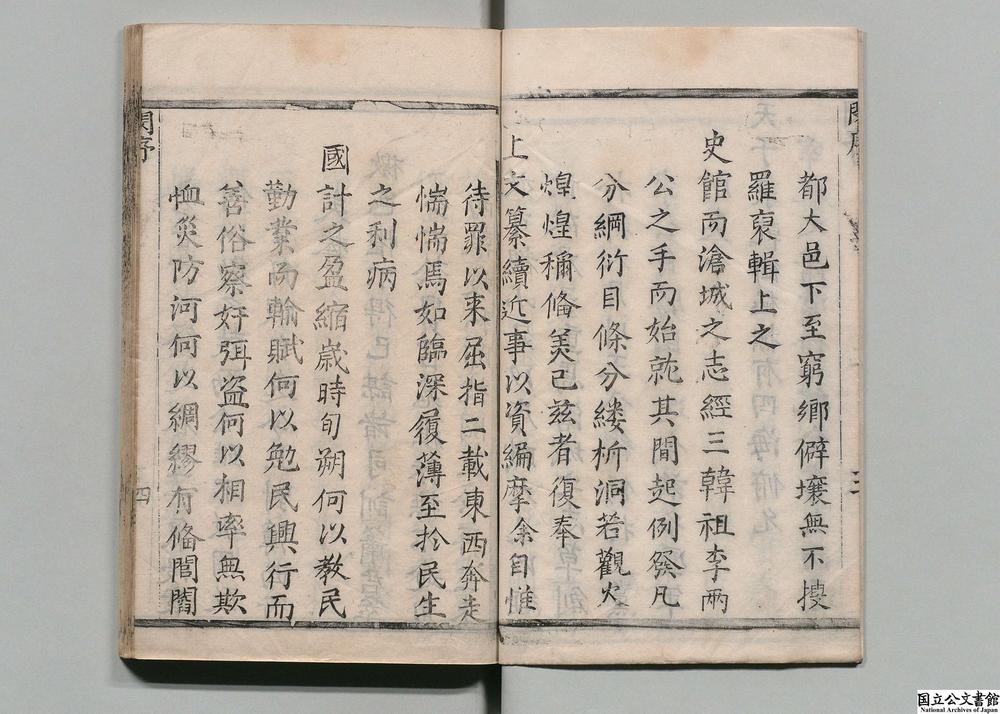 都大邑下至窮鄉僻壤無不搜
羅裒輯上之
史館而滄城之志經三韓祖李兩
公之手而始就其間起例發凡
分綱衍目條分縷析洞若觀火
煌煌稱俻美已兹者復奉
上文纂續近事以資編摩余自惟
待罪以来屈指二載東西奔走
惴惴焉如臨深履薄至扵民生
之利病
國計之盈縮歲時旬朔何以教民
勤業而輸賦何以勉民興行而
善俗察奸弭盗何以相率無欺
恤災防河何以綢繆有俻閭閻
四
国立公文書館
National Archives of Japan